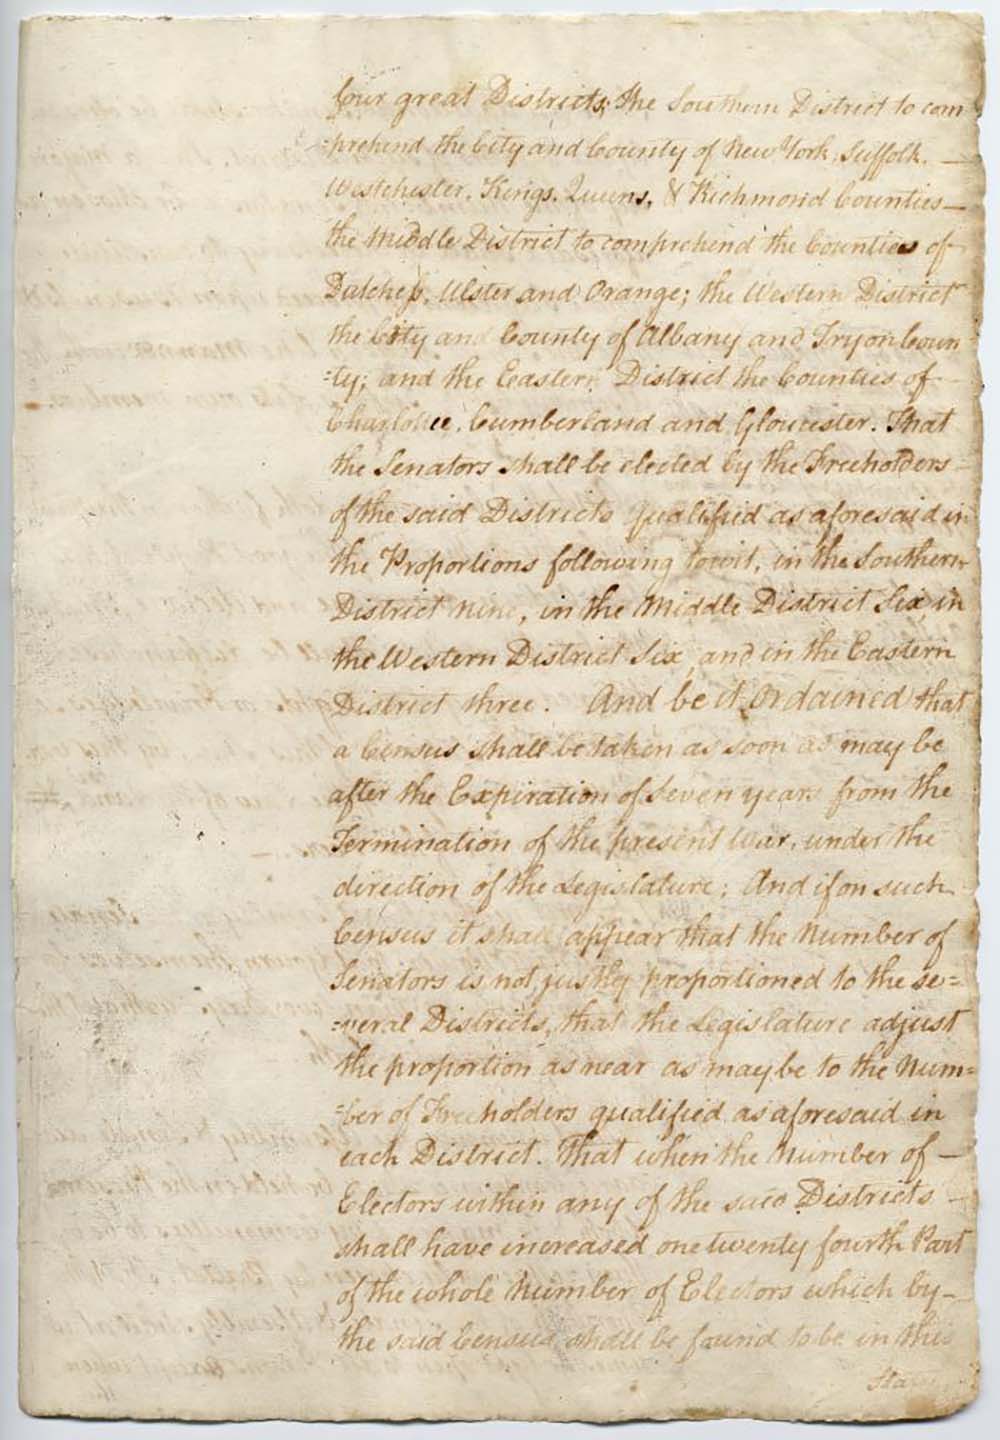 four great Districts; the Southern District to com
=prehend the City and County of New York, Suffolk, —
Westchester, Kings, Queens, & Richmond Counties —
the Middle District to comprehend the Counties of
Dutchess, Ulster and Orange; the Western District
the City and County of Albany and Tryon Coun
=ty; and the Eastern District the Counties of
Charlotte, Cumberland and Gloucester. That
the Senators shall be elected by the Freeholders
of the said Districts qualified as aforesaid in
the Proportions following towit, in the Southern
District nine, in the Middle District Six, in
the Western District Six, and in the Eastern
District three. And be it Ordained that
a Census shall be taken as soon as may be
after the Expiration of Seven years from the
Termination of the present War, under the
direction of the Legislature; And if on such
Census it shall appear that the Number of
Senators is not justly proportioned to the se=
=veral Districts, that the Legislature adjust
the proportion as near as may be to the Num=
=ber of Freeholders qualified as aforesaid in
each District. That when the Number of —
Electors within any of the said Districts —
shall have increased one twenty fourth Part
of the whole Number of Electors which by —
the said Census shall be found to be in this
State